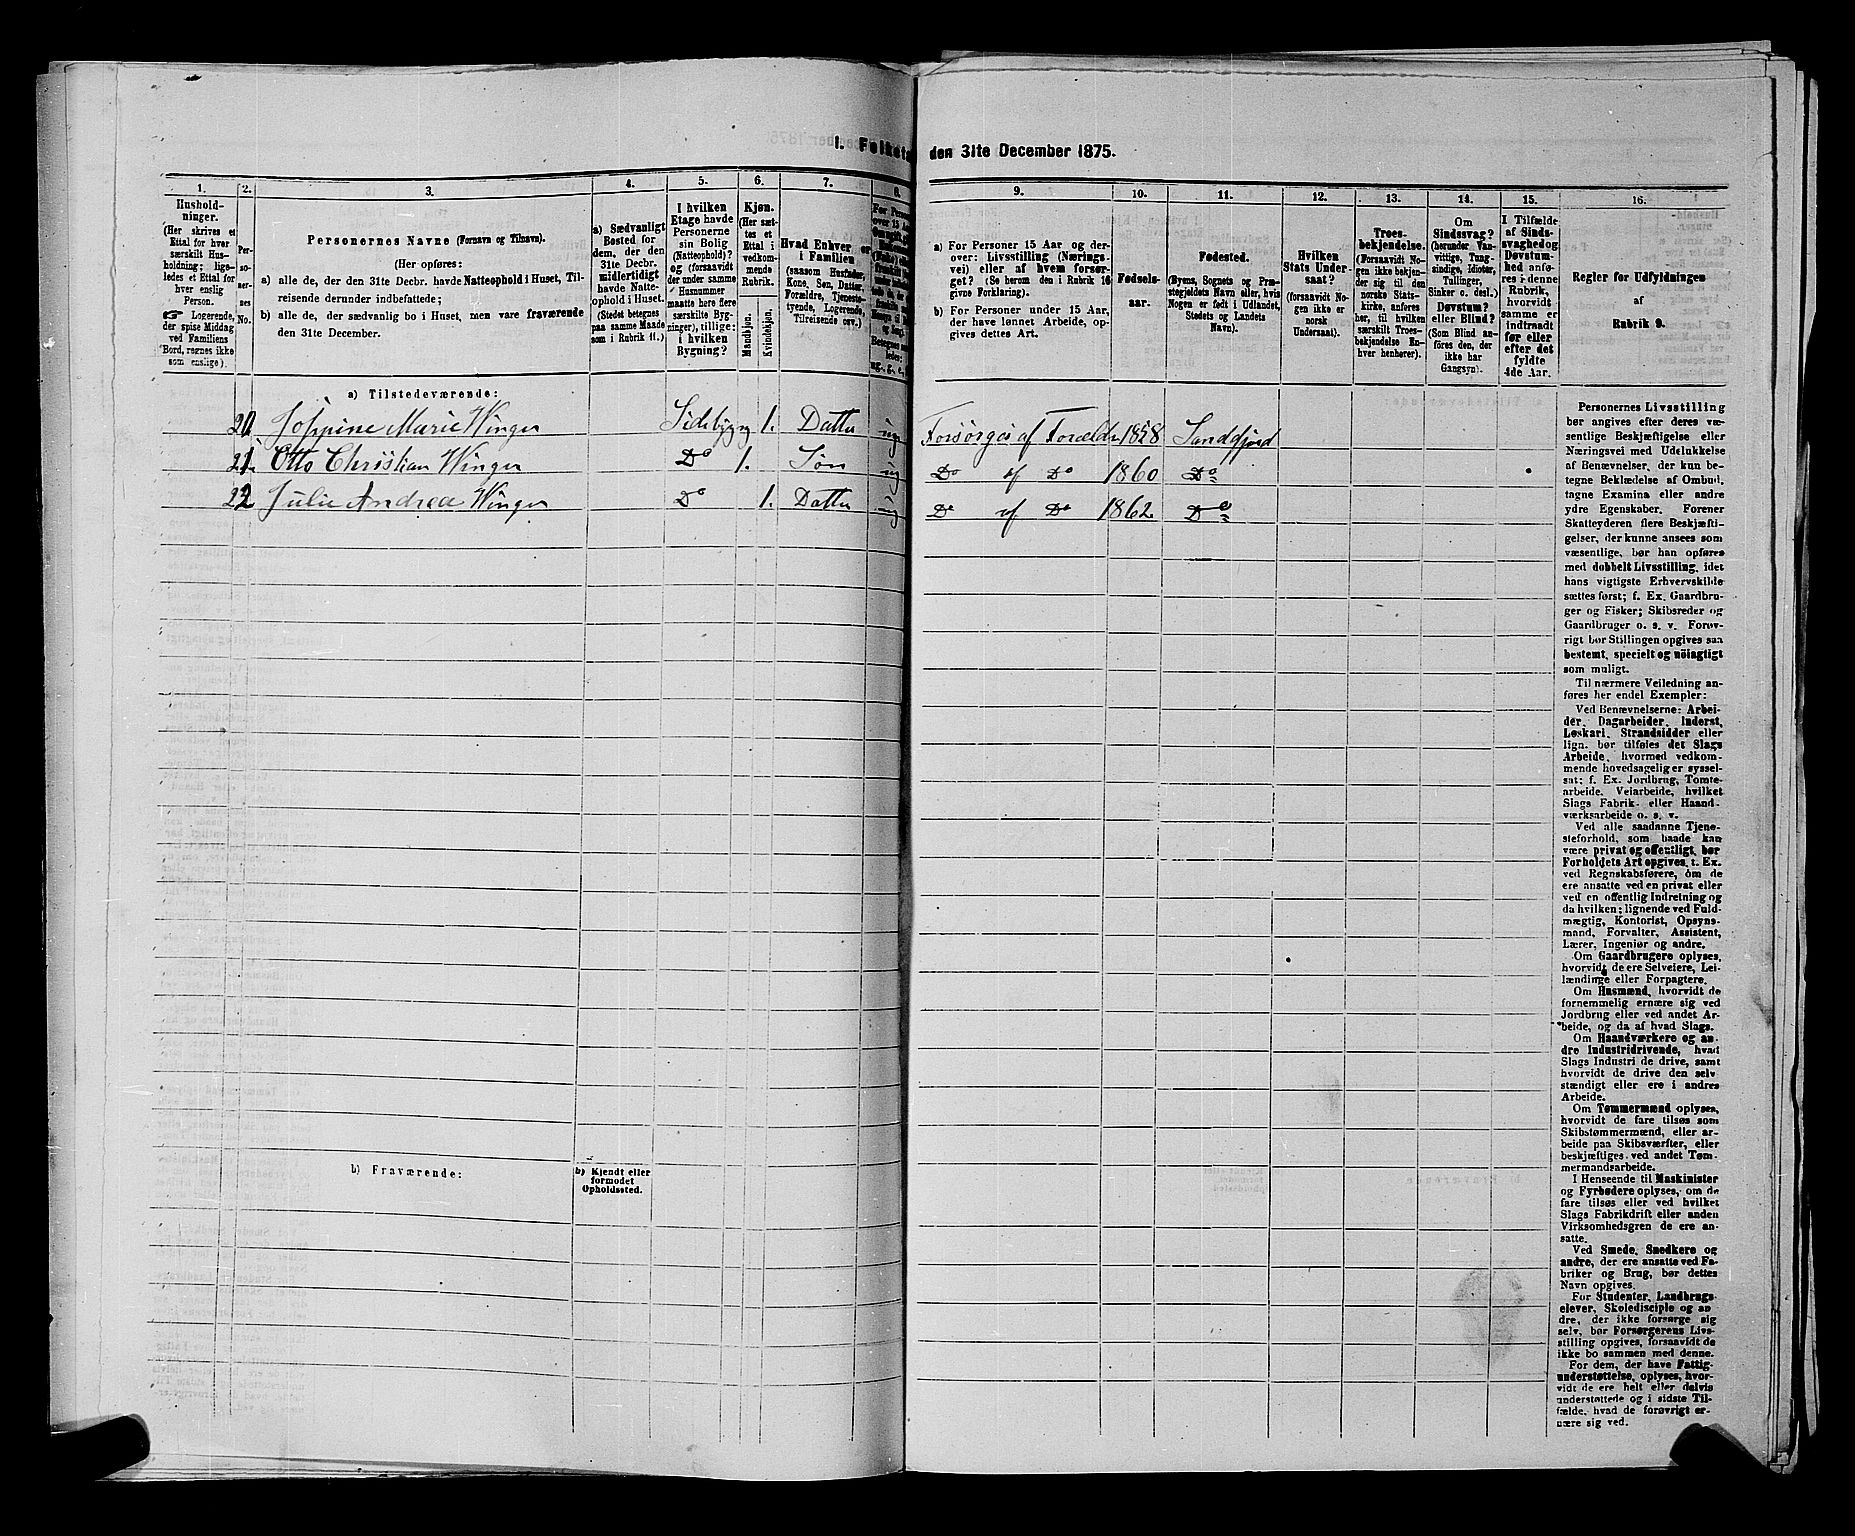 1. Folketæ
den 31te December 1875.
1.
2.
3.
4.
5.
6.
7.
8.
9.
10.
11.
12.
13.
14.
15.
16.
Hushold-
ninger.
(Her skrives et
Ettal for hver
særskilt Hus-
holdning; lige-
ledes et Ettal for
hver enslig
Person.
☞ Logerende,
der spise Middag
ved Familiens
Bord, regnes ikke
som enslige).
Per-
so-
ner-
nes
No.
Personernes Navne (Fornavn og Tilnavn).
(Her opføres:
a) alle de, der den 31te Decbr. havde Natteophold i Huset, Til-
reisende derunder indbefattede;
b) alle de, der sædvanlig bo i Huset, men vare fraværende
den 31te December.
a) Sædvanligt
Bosted for
dem, der den
31te Decbr.
midlertidigt
havde Natte-
ophold i Huset.
(Stedet betegnes
paa samme Maade
som i Rubrik 11.)
I hvilken
Etage havde
Personerne
sin Bolig
(Natteophold)?
og (forsaavidt
der under samme
Husnummer
maatte høre flere
særskilte Byg-
ninger), tillige:
i hvilken
Bygning?
Kjøn.
(Her sæt-
tes et
Ettal i
vedkom-
mende
Rubrik.
Mandkjøn.
Kvindekjøn.
Hvad Enhver er
i Familien
(saasom Husfader,
Kone, Søn, Datter,
Forældre, Tjeneste-
tyende, Logerende,
Tilreisende osv.)
a) For Personer 15 Aar og der-
over: Livsstilling (Nærings-
vei) eller af hvem forsør-
get? (Se herom den i Rubrik 16
givne Forklaring).
b) For Personer under 15 Aar,
der have lønnet Arbeide, op-
gives dettes Art.
Fødsels-
aar.
Fødested.
(Byens, Sognets og Præ-
stegjeldets Navn eller, hvis
Nogen er født i Udlandet,
Stedets og Landets
Navn).
Hvilken
Stats Under-
saat?
(forsaavidt No-
gen ikke er
norsk
Undersaat).
Troes-
bekjendelse.
(Forsaavidt No-
gen ikke bekjen-
der sig til den
norske Stats-
kirke, anføres
her, til hvilken
særskilt Troes-
bekjendelse En-
hver henhører).
Om
Sindssvag?
(herunder Van-
vittige, Tung-
sindige, Idioter,
Tullinger,
Sinker o. desl.)
Døvstum?
eller Blind?
(Som Blind an-
föres den, der
ikke har
Gangsyn).
I Tilfælde
af Sinds-
svaghed og
Døvstum-
hed anfø-
res i denne
Rubrik,
hvorvidt
samme er
indtraadt
før eller
efter det
fyldte
4de Aar.
Regler for Udfyldningen
af
Rubrik 9.
a) Tilstedeværende:
20 Josphine Marie Winger Sidebyg 1. Datter ug Forsørges af Forældre 1858 Sandefjord
21. Otto Christian Winger Do 1. Søn ug Do af Do 1860 Do
22 Julie Andrea Winger Do 1. Datter ug Do af Do 1862 Do
b) Fraværende:
b) Kjendt eller
formodet
Opholdssted.
Personernes Livsstilling
bør angives efter deres væ-
sentlige Beskjæftigelse eller
Næringsvei med Udelukkelse
af Benævnelser, der kun be-
tegne Beklædelse af Ombud,
tagne Examina eller andre
ydre Egenskaber. Forener
Skatteyderen flere Beskjæfti-
gelser, der kunne ansees som
væsentlige, bør han opføres
med dobbelt Livsstilling, idet
hans vigtigste Erhvervskilde
sættes først; f. Ex. Gaardbru-
ger og Fisker; Skibsreder og
Gaardbruger o. s. v. Forøv-
rigt bør Stillingen opgives saa
bestemt, specielt og nöiagtigt
som muligt.
Til nærmere Veiledning an-
føres her endel Exempler:
Ved Benævnelserne: Arbei-
der, Dagarbeider, Inderst,
Løskarl, Strandsidder eller
lign. bør tilføies det Slags
Arbeide, hvormed vedkom-
mende hovedsagelig er syssel-
sat; f. Ex. Jordbrug, Tomte-
arbeide, Veiarbeide, hvilket
Slags Fabrik- eller Haand-
værksarbeide o. s. v.
Ved alle saadanne Tjene-
steforhold, som baade kan
være privat og offentligt, bør
Forholdets Art opgives, t. Ex.
ved Regnskabsførere, om de
ere ansatte ved en privat eller
ved en offentlig Indretning og
da hvilken; lignende ved Fuld-
mægtig, Kontorist, Opsyns-
mand, Forvalter, Assistent,
Lærer, Ingeniør og andre.
Om Gaardbrugere oplyses,
hvorvidt de ere Selveiere, Lei-
lændinge eller Forpagtere.
Om Husmænd, hvorvidt de
fornemmelig ernære sig ved
Jordbrug eller ved andet Ar-
beide, og da af hvad Slags.
Om Haandværkere og an-
dre industridrivende, hvad
Slags Industri de drive, samt
hvorvidt de drive den selv-
stændigt eller ere i andres
Arbeide.
Om Tømmermænd oplyses,
hvorvidt de fare tilsøs som
Skibstømmermænd, eller ar-
beide paa Skibsværfter, eller
beskjæftiges ved andet Tøm-
mermandsarbeide.
I Henseende til Maskinister
og Fyrbødere oplyses, om de
fare tilsøs eller ved hvilket
Slags Fabrikdrift eller anden
Virksomhedsgren de ere an-
satte.
Ved Smede, Snedkere og
andre, der ere ansatte ved Fa-
briker og Brug, bør dettes
Navn opgives.
For Studenter, Landbrugs-
elever, Skoledisciple og an-
dre, der ikke forsørge sig
selv, bør Forsørgerens Livs-
stilling opgives, forsaavidt de
ikke bo sammen med denne.
For dem, der have Fattig-
understøttelse, oplyses, hvor-
vidt de ere helt eller delvis
understøttede og i sidste Til-
fælde, hvad de forøvrigt er-
nære sig ved.